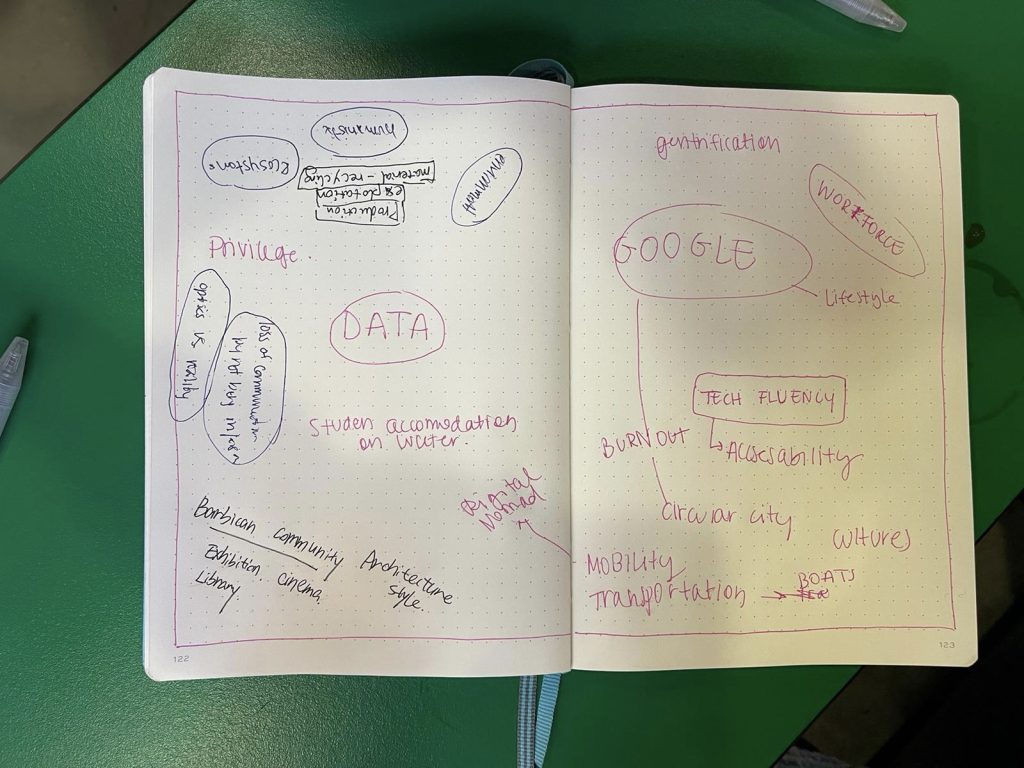 humanistic
Ecosystem
material - recycling
exploitation
Production
Privilege.
optics vs reality
loss of communication
by not being in person
DATA
Studen accomodation
on water.
Barbican community
Architecture
style.
Exhibition. cinema.
Library
Digital
Nomad
gentrification
WORKFORCE
GOOGLE
Lifestyle
TECH FLUENCY
Accesability
BURNOUT
Circular city
cultures
MOBILITY
Transportation → BOATS
122
123